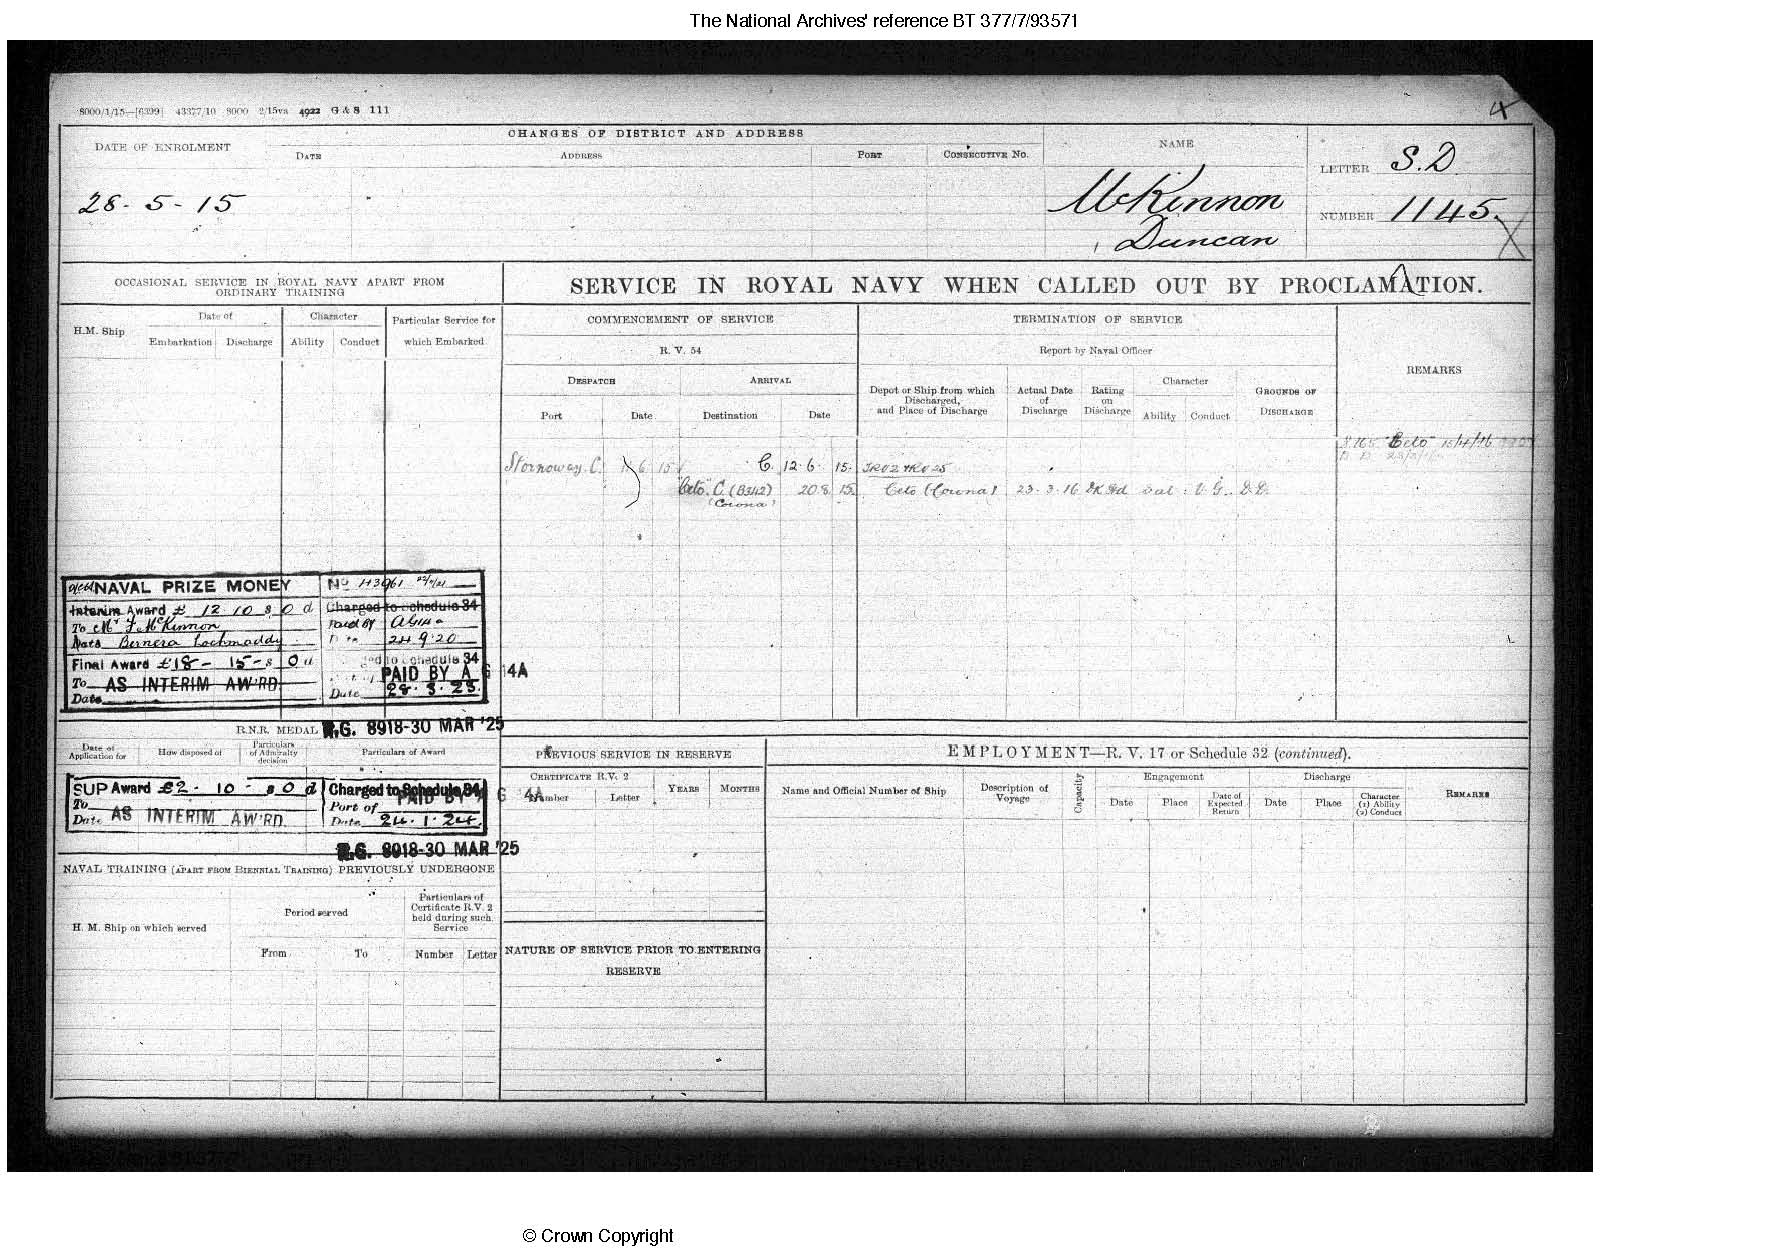 The National Archives' reference BT 377/7/93571
8000/1/15—[6399] 43377/10 8000 2/15va 4922 G & S 111
4
DATE OF ENROLMENT
28-5-15
CHANGES OF DISTRICT AND ADDRESS
DATE ADDRESS PORT CONSECUTIVE No.
NAME
McKinnon
Duncan
LETTER S.D.
NUMBER 1145
OCCASIONAL SERVICE IN ROYAL NAVY APART FROM
ORDINARY TRAINING
H.M. Ship
Date of
Embarkation Discharge
Character
Ability Conduct
Particular Service for
which Embarked
SERVICE IN ROYAL NAVY WHEN CALLED OUT BY PROCLAMATION.
COMMENCEMENT OF SERVICE
R. V. 54
DESPATCH ARRIVAL
Port Date Destination Date
TERMINATION OF SERVICE
Report by Naval Officer
Depot or Ship from which
Discharged,
and Place of Discharge
Actual Date
of
Discharge
Rating
on
Discharge
Character
Ability Conduct
GROUNDS OF
DISCHARGE
REMARKS
"Ceto" 15/4/16
Stornoway. C. 6 15 C. 12.6. 15.
"Ceto" C. (B342) 20.8 15. Ceto (Corona) 23.3.16 Dk Hd Sat: V.G. D.D.
(Corona)
NAVAL PRIZE MONEY
Interim Award £ 12 10 s 0 d
To Mr F. McKinnon
Bernera Lochmaddy
Final Award £18-15-s 0 d
To AS INTERIM AW'RD.
Date
No 43961
Charged to schedule 34
Paid BY
24 9 20
to schedule 34
PAID BY A G 14A
Date 28.3.23.
R.N.R. MEDAL R.G. 8918-30 MAR '25
Date of
Application for
How disposed of
Particulars
of Admiralty
decision
Particulars of Award
SUP Award £2-10-s 0 d
To
Date AS INTERIM AW'RD.
Charged to Schedule 34
PAID BY A G 4A
Port of
Date 24.1.24.
R.G. 8918-30 MAR '25
NAVAL TRAINING (APART FROM BIENNIAL TRAINING) PREVIOUSLY UNDERGONE
H. M. Ship on which served
Period served
From To
Particulars of
Certificate R.V. 2
held during such
Service
Number Letter
PREVIOUS SERVICE IN RESERVE
CERTIFICATE R.V. 2
Number Letter
YEARS MONTHS
NATURE OF SERVICE PRIOR TO ENTERING
RESERVE
EMPLOYMENT—R. V. 17 or Schedule 32 (continued).
Name and Official Number of Ship
Description of
Voyage
Capacity
Engagement
Date Place
Date of
Expected
Return
Discharge
Date Place
Character
(1) Ability
(2) Conduct
REMARKS
© Crown Copyright